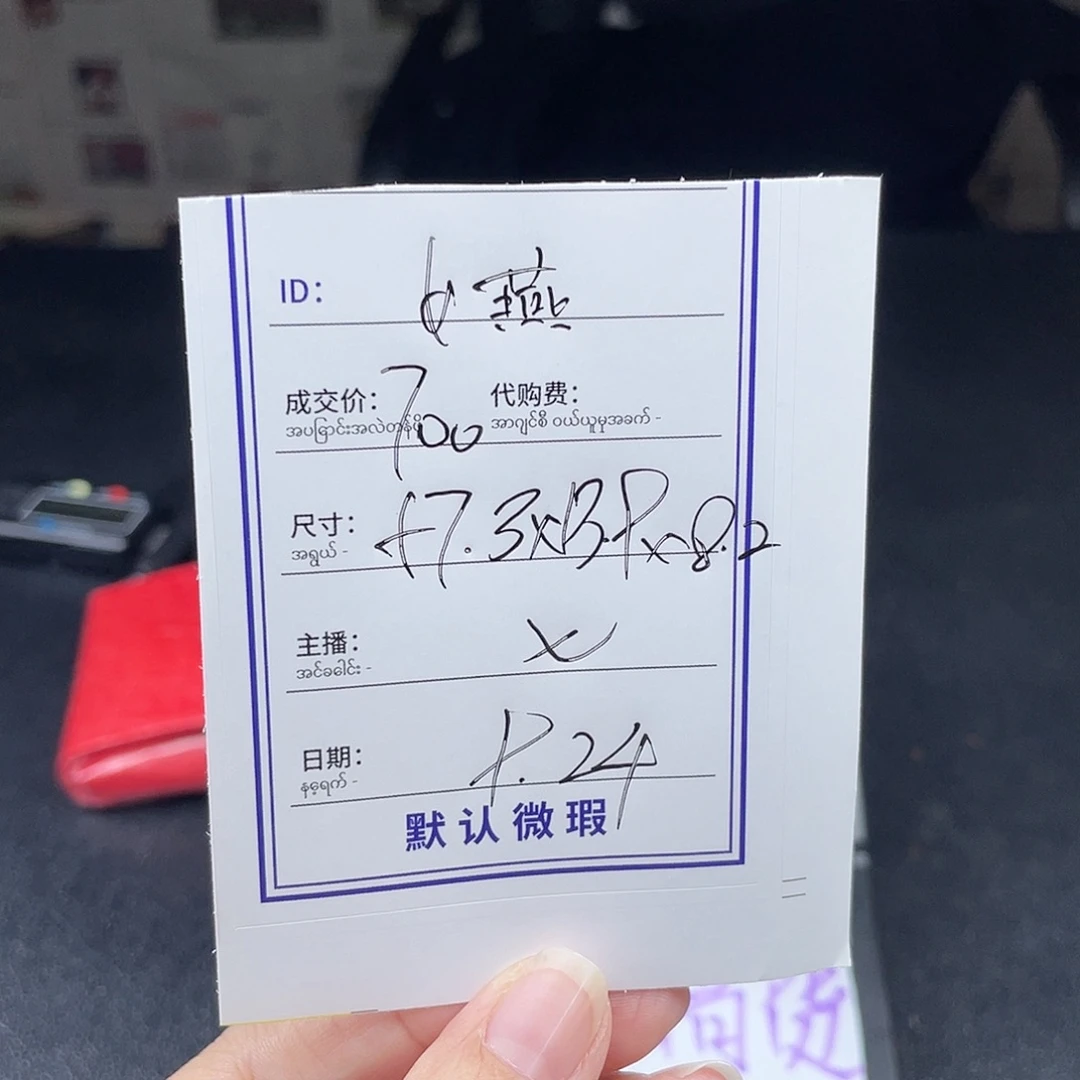 ID: 燕
成交价: 700 代购费:
အပြောင်းအလဲတန်ဖိုး အာဂျင်စီ ဝယ်ယူမှုအခက် -
尺寸: 47.3x13.9x8.2
အရွယ် -
主播: x
အင်ခေါင်း -
日期: 9.24
နေ့ရက် -
默认微瑕